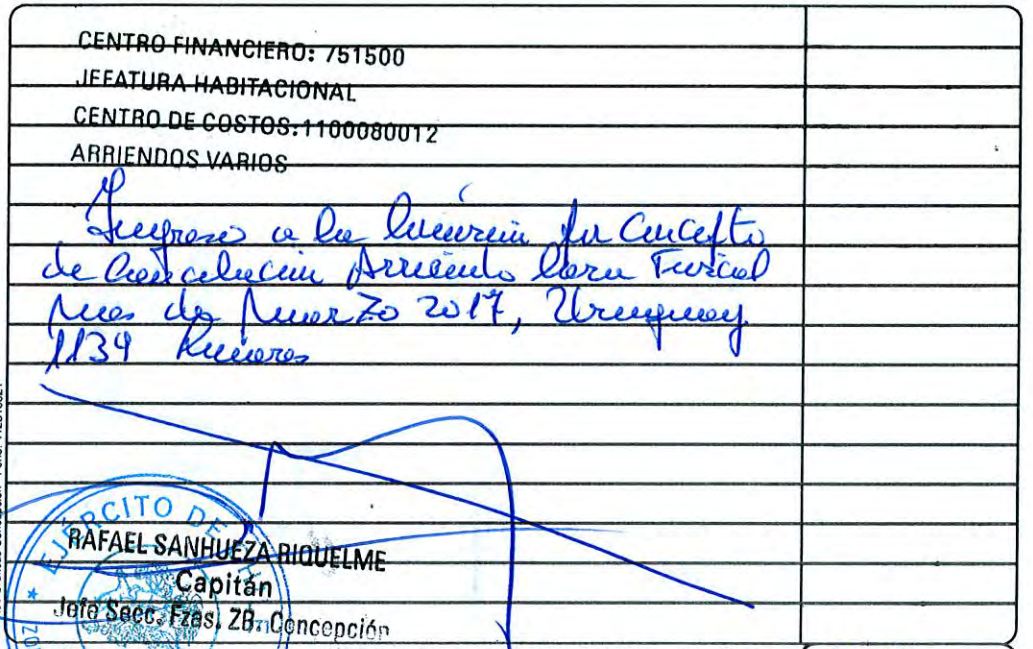 CENTRO FINANCIERO: 751500
JEFATURA HABITACIONAL
CENTRO DE COSTOS:1100080012
ARRIENDOS VARIOS
Ingreso a la por Concepto
de Cancelación Arriendo Casa Fiscal
mes de Marzo 2017, Uruguay
1134
EJÉRCITO DE
RAFAEL SANHUEZA RIQUELME
Capitán
Jefe Secc. Fzas. ZB. Concepción